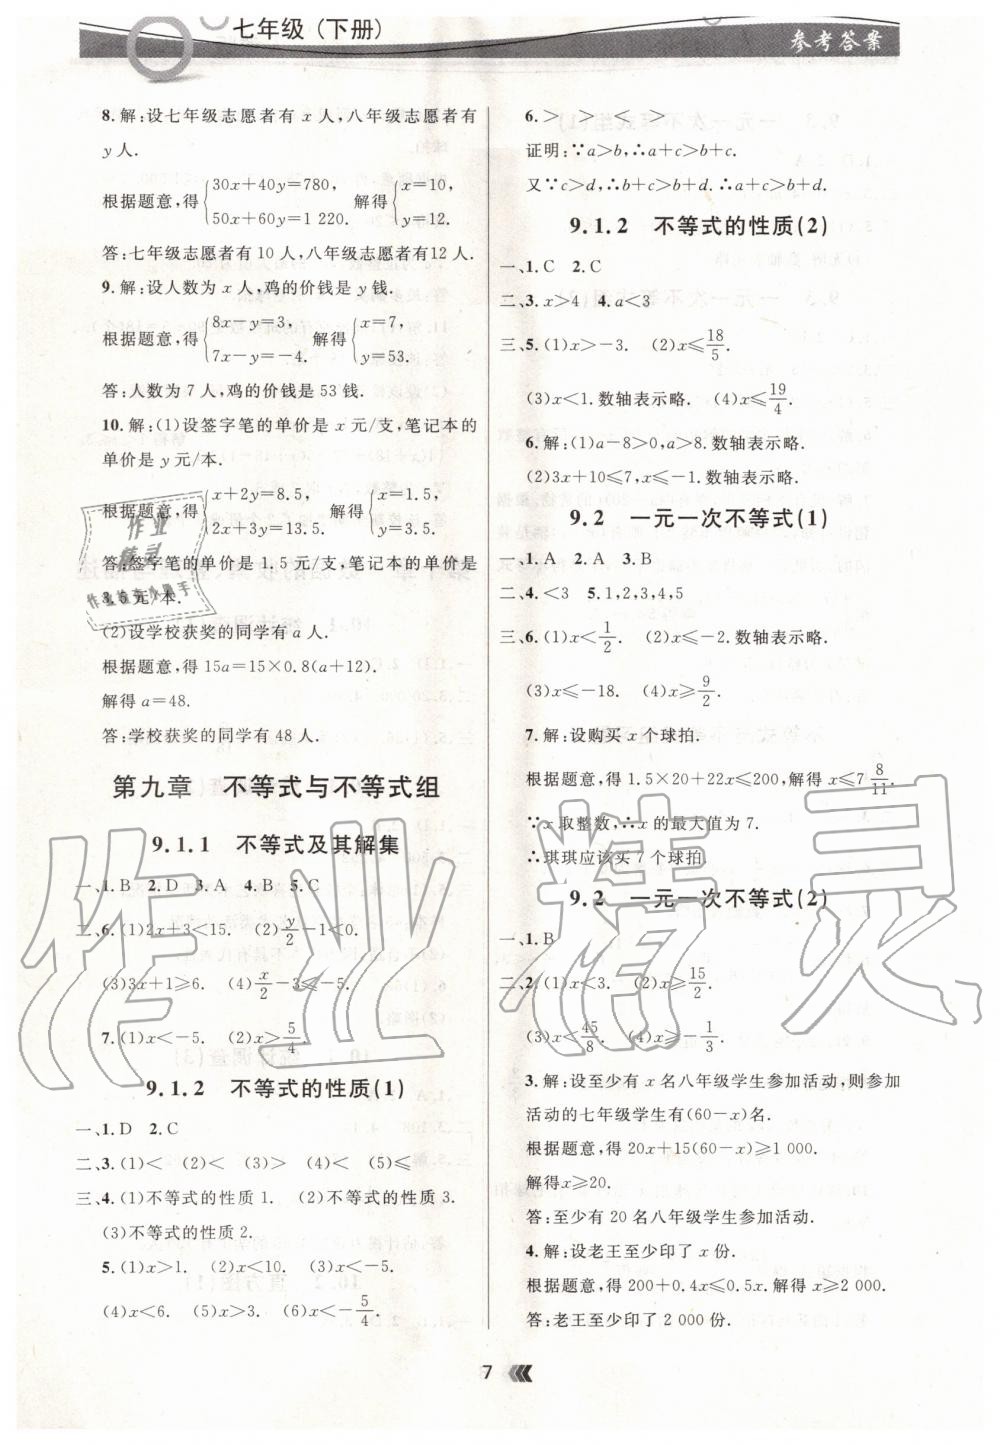 七年级(下册)
参考答案
8.解:设七年级志愿者有 x 人,八年级志愿者有
y 人.
根据题意,得{30x+40y=780, 50x+60y=1 220. 解得{x=10, y=12.
答:七年级志愿者有 10 人,八年级志愿者有12 人.
9.解:设人数为 x 人,鸡的价钱是 y 钱.
根据题意,得{8x-y=3, 7x-y=-4. 解得{x=7, y=53.
答:人数为 7 人,鸡的价钱是 53 钱.
10.解:(1)设签字笔的单价是 x 元/支,笔记本的
单价是 y 元/本.
根据题意,得{x+2y=8.5, 2x+3y=13.5. 解得{x=1.5, y=3.5.
答:签字笔的单价是 1.5 元/支,笔记本的单价是
3.5 元/本.
(2)设学校获奖的同学有 a 人.
根据题意,得 15a=15×0.8(a+12).
解得 a=48.
答:学校获奖的同学有 48 人.
第九章 不等式与不等式组
9.1.1 不等式及其解集
一、1.B 2.D 3.A 4.B 5.C
二、6.(1)2x+3<15. (2)y/2-1<0.
(3)3x+1≥6. (4)x/2-3≤-5.
7.(1)x<-5. (2)x>5/4.
9.1.2 不等式的性质(1)
一、1.D 2.C
二、3.(1)< (2)< (3)> (4)< (5)≤
三、4.(1)不等式的性质 1. (2)不等式的性质 3.
(3)不等式的性质 2.
5.(1)x>1. (2)x<10. (3)x<2.
(4)x<6. (5)x>3. (6)x<-5/4.
6.> > > > <
证明:∵a>b,∴a+c>b+c.
又∵c>d,∴b+c>b+d.∴a+c>b+d.
9.1.2 不等式的性质(2)
一、1.C 2.C
二、3.x>4 4.a<3
三、5.(1)x>-3. (2)x≤18/5.
(3)x<1.数轴表示略. (4)x≤19/4.
6.解:(1)a-8>0,a>8.数轴表示略.
(2)3x+10≤7,x≤-1.数轴表示略.
9.2 一元一次不等式(1)
一、1.A 2.A 3.B
二、4.<3 5.1,2,3,4,5
三、6.(1)x<1/2. (2)x≤-2.数轴表示略.
(3)x≤-18. (4)x≥9/2.
7.解:设购买 x 个球拍.
根据题意,得 1.5×20+22x≤200,解得 x≤7 8/11.
∵x 取整数,∴x 的最大值为 7.
∴琪琪应该买 7 个球拍.
9.2 一元一次不等式(2)
一、1.B
二、2.(1)x<3. (2)x≥15/2.
(3)x<45/8. (4)x≥-1/3.
3.解:设至少有 x 名八年级学生参加活动,则参加
活动的七年级学生有(60-x)名.
根据题意,得 20x+15(60-x)≥1 000.
解得x≥20.
答:至少有 20 名八年级学生参加活动.
4.解:设老王至少印了 x 份.
根据题意,得 200+0.4x≤0.5x.解得 x≥2 000.
答:老王至少印了 2 000 份.
7
作业
精灵
作业检查小助手
作业精灵